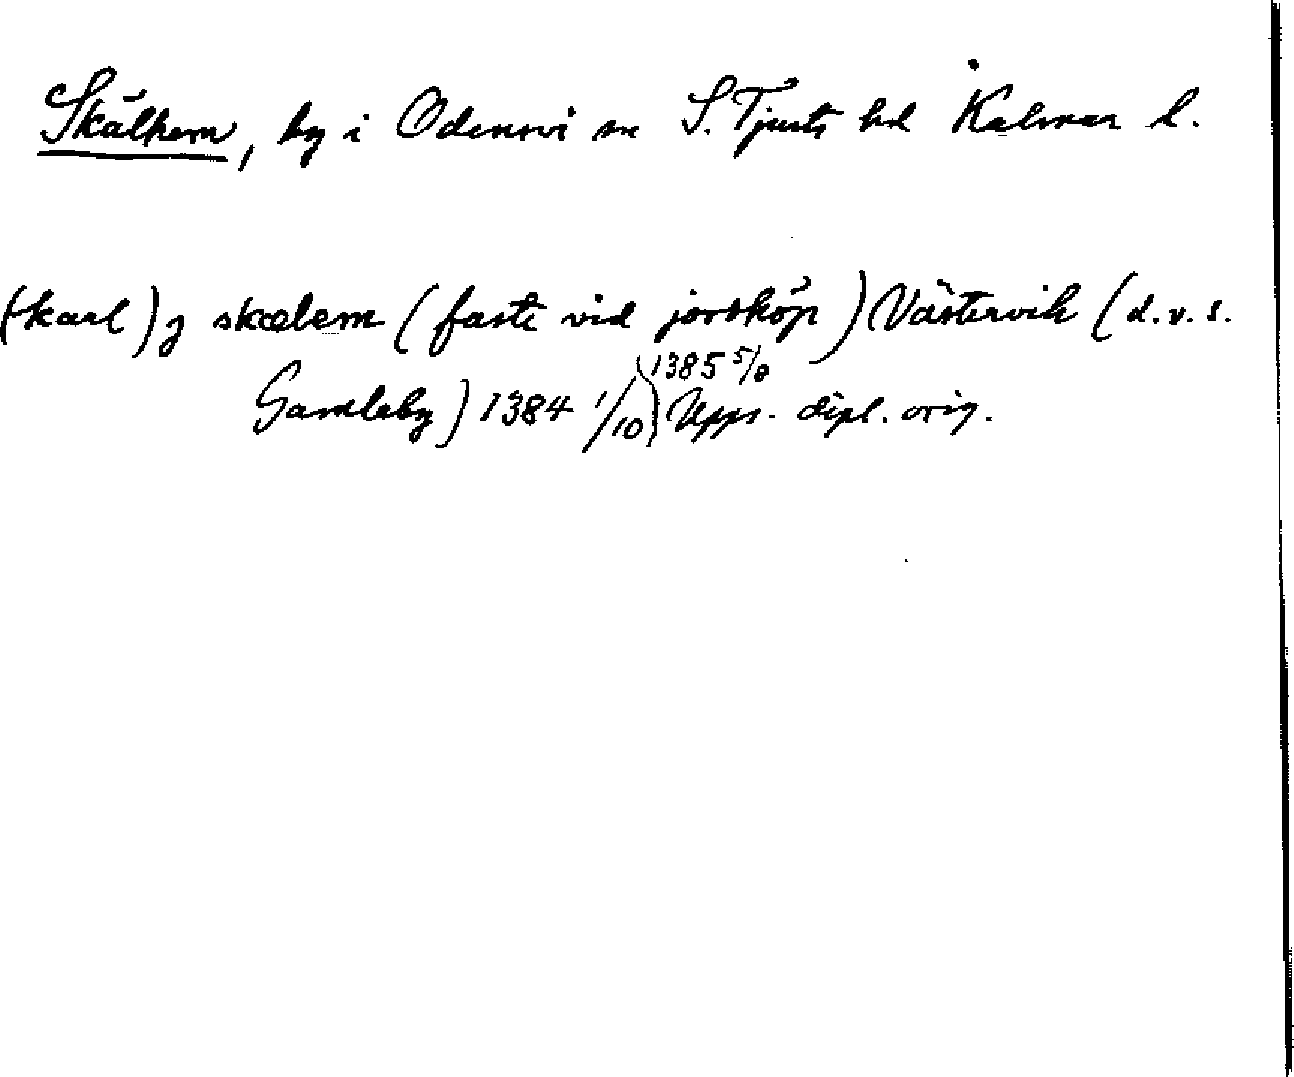 Skälhem, by i Odensvi sn S. Tjusts hd Kalmar l.
(karl) j skælem (faste vid jordköp) Västervik (d.v.s.
(1385 5/8
Gamleby) 1384 1/10) Upps. dipl. orig.